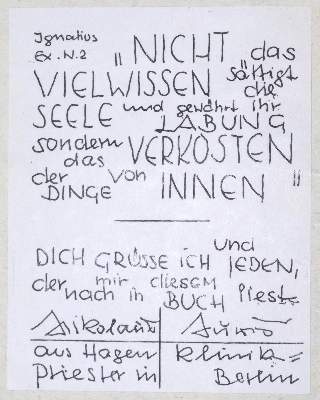 Ignatius
Ex. N.2 „NICHT das
VIELWISSEN sättigt die
SEELE und gewährt ihr
LABUNG
sondern das VERKOSTEN
der DINGE von INNEN“
DICH GRÜSSE iCH und JEDEN,
der mir diesem
nach in BUCH liest
Nikolaus
aus Hagen Klinik=
Priester in Berlin